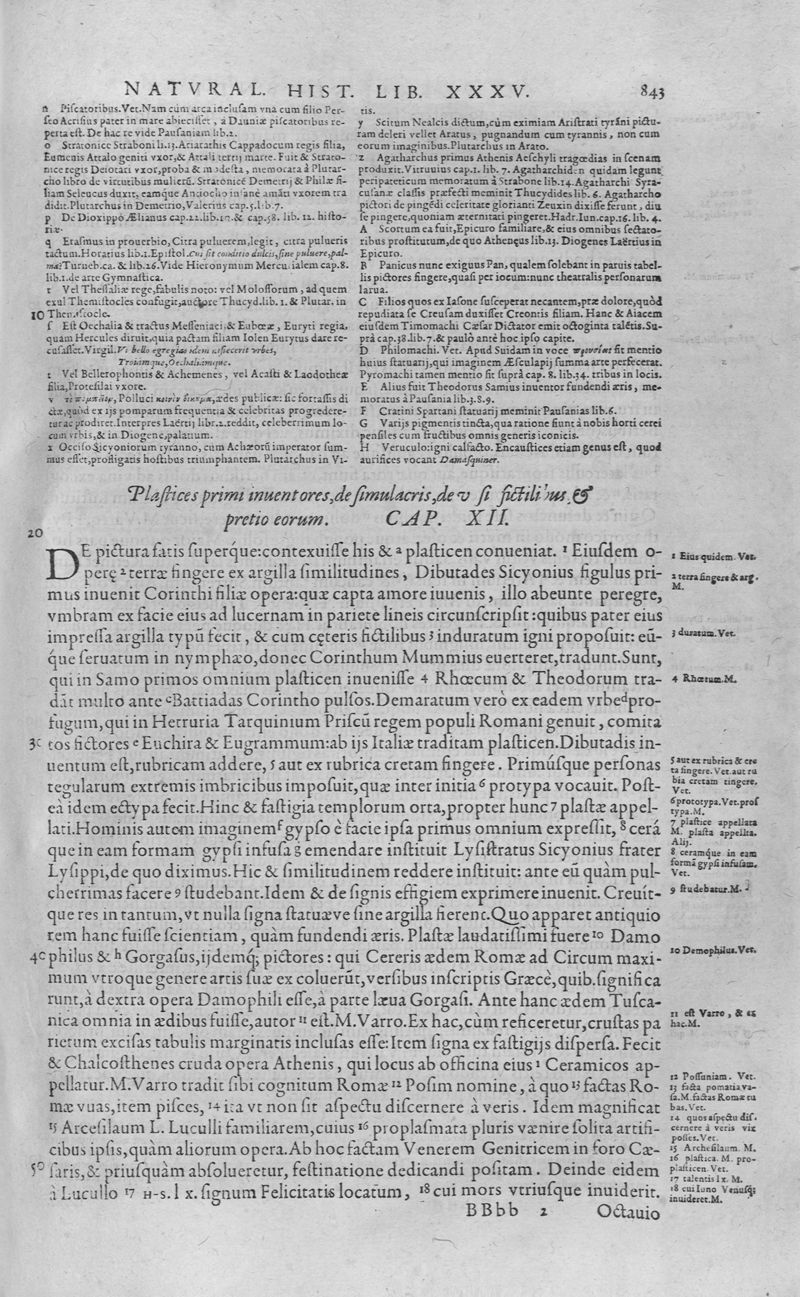 NATVRAL. HIST. LIB. XXXV. 843
n Piſcatoribus. Vet. Nam cùm arca incluſam vna cum filio Per-
ſeo Acriſius pater in mare abieciſſet, à Dauniæ piſcatoribus re-
perta eſt. De hac re vide Pauſaniam lib.2.
o Stratonice Straboni li.13. Ariarathis Cappadocum regis filia,
Eumenis Attalo geniti vxor, & Attali tertij mater. Fuit & Strato-
nice regis Deiotari vxor, proba & modeſta, memorata à Plutar-
cho libro de virtutibus mulierũ. Stratonicé Demetrij & Philæ fi-
liam Seleucus duxit, eamque Antiocho inſané amãti vxorem tra
didit. Plutarchus in Demetrio, Valerius cap.5.lib.7.
p De Dioxippo Ælianus cap.22.lib.10.& cap.58. lib. 12. hiſto-
riæ.
q Eraſmus in prouerbio, Citra puluerem, legit, citra pulueris
tactum. Horatius lib.1. Epiſtol. Cui ſit conditio dulcis, ſine puluere, pal-
mæ? Turneb.ca. & lib.26. Vide Hieronymum Mercurialem cap.8.
lib.1.de arte Gymnaſtica.
r Vel Theſſaliæ rege, fabulis noto: vel Moloſſorum, ad quem
exul Themiſtocles confugit, auctore Thucyd.lib. 1. & Plutar. in
10 Themiſtocle.
ſ Eſt Oechalia & tractus Meſſeniaci, & Eubœæ, Euryti regia,
quàm Hercules diruit, quia pactam filiam Iolen Eurytus dare re-
cuſaſſet. Virgil. Vt bello egregias idem diſiecerit vrbes,
Troiámque, Oechaliámque.
t Vel Bellerophontis & Achemenes, vel Acaſti & Laodotheæ
filia, Proteſilai vxore.
v Polluci ædes publicæ: ſic fortaſſis di
ctæ, quòd ex ijs pomparum frequentia & celebritas progredere-
tur ac prodiret. Interpres Laërtij libr.2. reddit, celeberrimum lo-
cum vrbis, & in Diogene, palatium.
x Occiſo Sicyoniorum tyranno, cum Achæorũ imperator ſum-
mus eſſet, profligatis hoſtibus triumphantem. Plutarchus in Vi-
tis.
y Scitum Nealcis dictum, cùm eximiam Ariſtrati tyrãni pictu-
ram deleri vellet Aratus, pugnandum cum tyrannis, non cum
eorum imaginibus. Plutarchus in Arato.
z Agatharchus primus Athenis Aeſchyli tragœdias in ſcenam
produxit. Vitruuius cap.1. lib. 7. Agatharchiden quidam legunt
peripateticum memoratum à Strabone lib.14. Agatharchi Syra-
cuſanæ claſſis præfecti meminit Thucydides lib. 6. Agatharcho
pictori de pingẽdi celeritate glorianti Zeuxin dixiſſe ferunt, diu
ſe pingere, quoniam æternitati pingeret. Hadr. Iun.cap.16. lib. 4.
A Scortum ea fuit, Epicuro familiare, & eius omnibus ſectato-
ribus proſtitutum, de quo Athenęus lib.13. Diogenes Laërtius in
Epicuro.
B Panicus nunc exiguus Pan, qualem ſolebant in paruis tabel-
lis pictores fingere, quaſi per iocum: nunc theatralis perſonarum
larua.
C Filios quos ex Iaſone ſuſceperat necantem, præ dolore, quòd
repudiata ſe Creuſam duxiſſet Creontis filiam. Hanc & Aiacem
eiuſdem Timomachi Cæſar Dictator emit octoginta talẽtis. Su-
prà cap.38.lib.7.& paulò antè hoc ipſo capite.
D Philomachi. Vet. Apud Suidam in voce fit mentio
huius ſtatuarij, qui imaginem Æſculapij ſumma arte perfecerat.
Pyromachi tamen mentio fit ſuprà cap. 8. lib.34. tribus in locis.
E Alius fuit Theodorus Samius inuentor fundendi æris, me-
moratus à Pauſania lib.3.8.9.
F Cratini Spartani ſtatuarij meminit Pauſanias lib.6.
G Varijs pigmentis tincta, qua ratione fiunt à nobis horti cerei
penſiles cum fructibus omnis generis iconicis.
H Veruculo: igni calfacto. Encauſtices etiam genus eſt, quod
aurifices vocant Damaſquiner.
Plaſtices primi inuentores, de ſimulacris, de vſu fictilibus, &
pretio eorum. CAP. XII.
20
DE pictura ſatis ſuperque: contexuiſſe his & ª plaſticen conueniat. 1 Eiuſdem o-
perę 2 terræ fingere ex argilla ſimilitudines, Dibutades Sicyonius figulus pri-
mus inuenit Corinthi filiæ opera: quæ capta amore iuuenis, illo abeunte peregre,
vmbram ex facie eius ad lucernam in pariete lineis circunſcripſit: quibus pater eius
impreſſa argilla typũ fecit, & cum cęteris fictilibus 3 induratum igni propoſuit: eũ-
que ſeruatum in nymphæo, donec Corinthum Mummius euerteret, tradunt. Sunt,
qui in Samo primos omnium plaſticen inueniſſe 4 Rhœcum & Theodorum tra-
dãt multo ante c Battiadas Corintho pulſos. Demaratum verò ex eadem vrbe d pro-
fugum, qui in Hetruria Tarquinium Priſcũ regem populi Romani genuit, comita
30 tos fictores e Euchira & Eugrammum: ab ijs Italiæ traditam plaſticen. Dibutadis in-
uentum eſt, rubricam addere, 5 aut ex rubrica cretam fingere. Primúſque perſonas
tegularum extremis imbricibus impoſuit, quæ inter initia 6 protypa vocauit. Poſt-
eà idem ectypa fecit. Hinc & faſtigia templorum orta, propter hunc 7 plaſtæ appel-
lati. Hominis autem imaginem f gypſo è facie ipſa primus omnium expreſſit, 8 cerá
que in eam formam gypſi infuſa g emendare inſtituit Lyſiſtratus Sicyonius frater
Lyſippi, de quo diximus. Hic & ſimilitudinem reddere inſtituit: ante eũ quàm pul-
cherrimas facere 9 ſtudebant. Idem & de ſignis effigiem exprimere inuenit. Creuit-
que res in tantum, vt nulla ſigna ſtatuæve ſine argilla fierent. Quo apparet antiquio
rem hanc fuiſſe ſcientiam, quàm fundendi æris. Plaſtæ laudatiſſimi fuere 10 Damo
40 philus & h Gorgaſus, ijdemq; pictores: qui Cereris ædem Romæ ad Circum maxi-
mum vtroque genere artis ſuæ ex coluerũt, verſibus inſcriptis Græcè, quib. ſignifica
runt, à dextra opera Damophili eſſe, à parte læua Gorgaſi. Ante hanc ædem Tuſca-
nica omnia in ædibus fuiſſe, autor 11 eſt. M. Varro. Ex hac, cùm reficeretur, cruſtas pa
rietum exciſas tabulis marginatis incluſas eſſe: Item ſigna ex faſtigijs diſperſa. Fecit
& Chalcoſthenes cruda opera Athenis, qui locus ab officina eius i Ceramicos ap-
pellatur. M. Varro tradit ſibi cognitum Romæ 12 Poſim nomine, à quo 13 factas Ro-
mæ vuas, item piſces, 14 ita vt non ſit aſpectu diſcernere à veris. Idem magnificat
15 Arceſilaum L. Luculli familiarem, cuius 16 proplaſmata pluris vænire ſolita artifi-
cibus ipſis, quàm aliorum opera. Ab hoc factam Venerem Genitricem in foro Cæ-
50 ſaris, & priuſquàm abſolueretur, feſtinatione dedicandi poſitam. Deinde eidem
à Lucullo 17 H-S. lx. ſignum Felicitatis locatum, 18 cui mors vtriuſque inuiderit.
BBbb 2 Octauio
1 Eius quidem. Vet.
2 terra fingere & arg.
M.
3 duratum. Vet.
4 Rhœtum. M.
5 aut ex rubrica & cre
ta fingere. Vet. aut ru
bia cretam tingere.
Vet.
6 prototypa. Vet. prof
typa. M.
7 plaſtice appellata
M. plaſta appellta.
Alij.
8 ceramque in eam
formã gypſi infuſam.
Vet.
9 ſtudebatur. M.
10 Demophilus. Vet.
11 eſt Varro, & ex
hac. M.
12 Poſſuniam. Vet.
13 facta pomaria va-
ſa. M. factas Romæ tu
bas. Vet.
14 quos aſpectu diſ.
cernere à veris vix
poſſes. Vet.
15 Archeſilaum. M.
16 plaſtica. M. pro-
plaſticen. Vet.
17 talentis lx. M.
18 cui Iuno Venuſq;
inuideret. M.